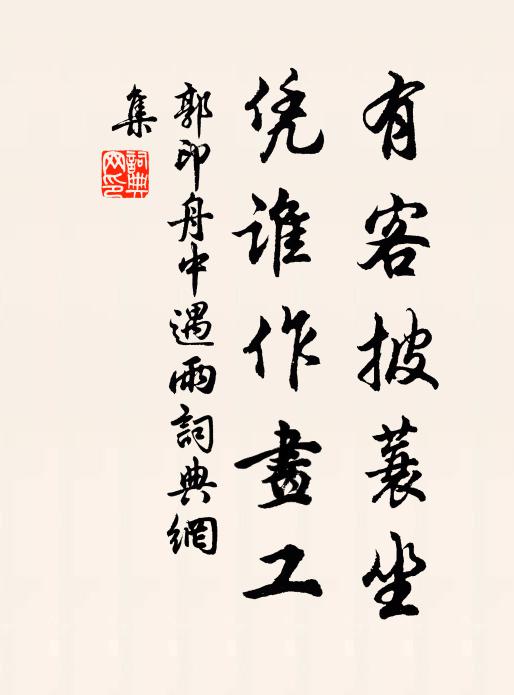 有客披蓑坐
凭谁作畫工
郭印舟中遇雨詞典網
集
詞典
网印